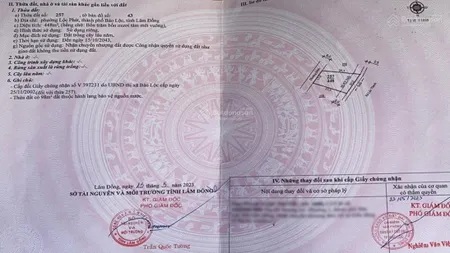 II. Thửa đất, nhà ở và tài sản khác gắn liền với đất
1. Thửa đất:
a) Thửa đất số: 257 , tờ bản đồ số: 43
b) Địa chỉ: phường Lộc Phát, thành phố Bảo Lộc, tỉnh Lâm Đồng
c) Diện tích: 448m², (bằng chữ: Bốn trăm bốn mươi tám mét vuông)
d) Hình thức sử dụng: Sử dụng riêng
đ) Mục đích sử dụng: Đất trồng cây lâu năm
e) Thời hạn sử dụng: Đến ngày 15/10/2043
g) Nguồn gốc sử dụng: Nhận chuyển nhượng đất được Công nhận quyền sử dụng đất như giao đất không thu tiền sử dụng đất.
2. Nhà ở: -/-
3. Công trình xây dựng khác: -/-
4. Rừng sản xuất là rừng trồng: -/-
5. Cây lâu năm: -/-
6. Ghi chú:
- Cấp đổi Giấy chứng nhận số V 397231 do UBND thị xã Bảo Lộc cấp ngày 25/11/2002 (đối với thửa 257)
- Thửa đất có đất thuộc hành lang bảo vệ nguồn nước.
Lâm Đồng, ngày tháng năm 2023
SỞ TÀI NGUYÊN VÀ MÔI TRƯỜNG TỈNH LÂM ĐỒNG
KT. GIÁM ĐỐC
PHÓ GIÁM ĐỐC
Trần Quốc Tường
IV. Những thay đổi sau khi cấp Giấy chứng nhận
Nội dung thay đổi và cơ sở pháp lý
Xác nhận của cơ quan có thẩm quyền
KT. GIÁM ĐỐC
PHÓ GIÁM ĐỐC
Nghiêm Văn